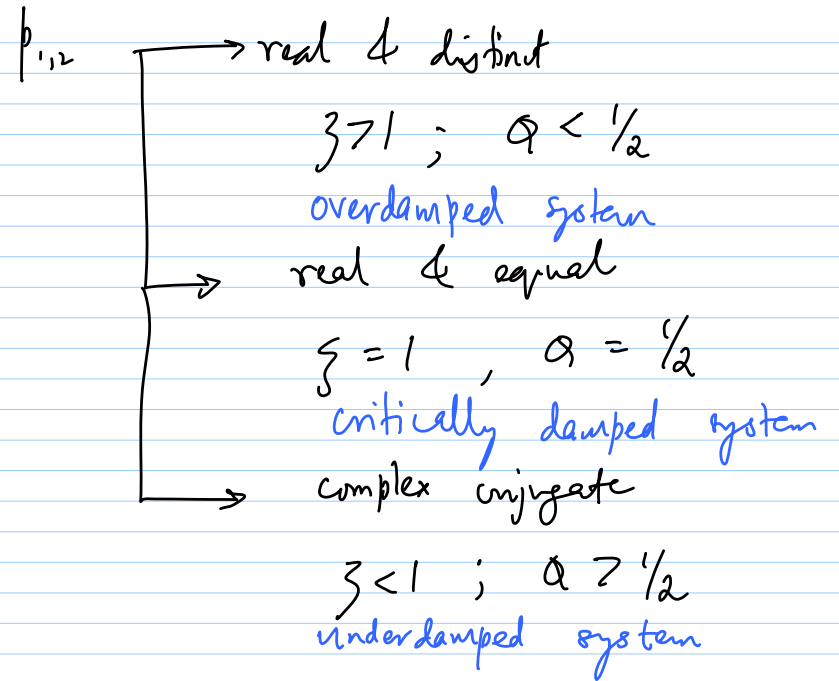 p₁,₂ → real & distinct
ξ > 1 ; Q < 1/2
overdamped system
→ real & equal
ξ = 1 , Q = 1/2
critically damped system
→ complex conjugate
ξ < 1 ; Q > 1/2
underdamped system